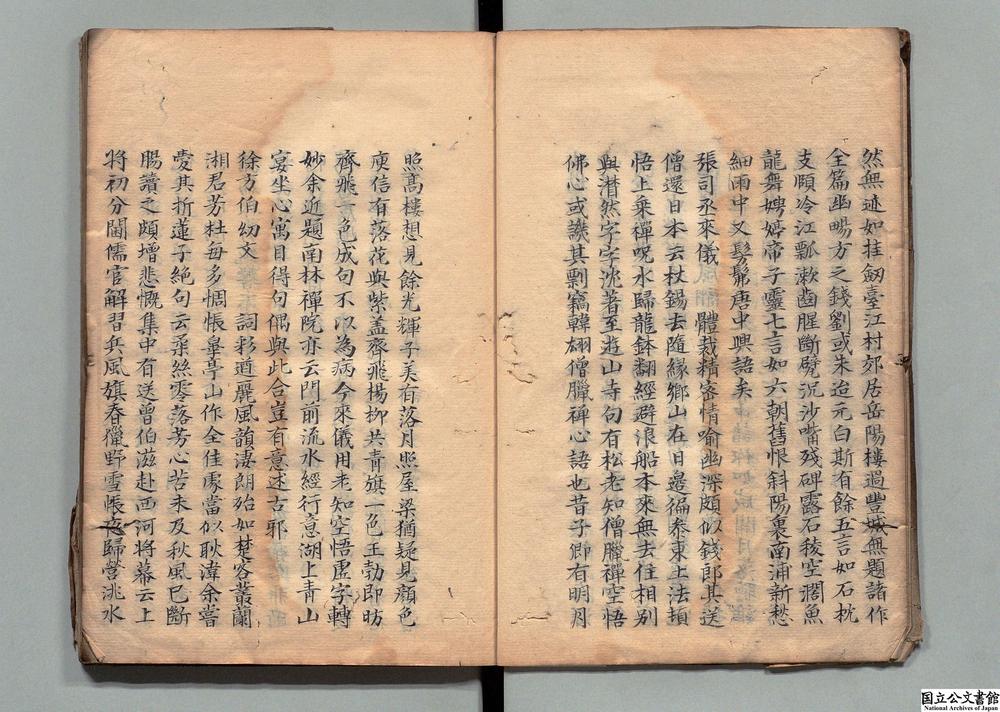 然無迹如挂劒臺江村郊居岳陽樓過豐城無題諸作
全篇幽暢方之錢劉或朱迨元白斯有餘五言如石枕
支頤冷江瓢漱齒腥斷礕沉沙嘴殘碑露石稜空濶魚
龍舞娉婷帝子靈七言如六朝舊恨斜陽裏南浦新愁
細雨中又髣髴唐中興語矣
張司丞來儀 體裁精密情喻幽深頗似錢郎其送
僧還日本云杖錫去隨緣鄉山在日邊徧叅東土法頓
悟上乘禪呪水歸龍鉢翻經避浪船本來無去住相別
與潸然字字沈著至遊山寺句有松老知僧臘禪空悟
佛心或譏其剽竊韓翃僧臘禪心語也昔子卿有明月
照高樓想見餘光輝子美有落月照屋梁猶疑見顔色
庾信有落花與紫盖齊飛楊柳共青旗一色王勃即昉
齊飛一色成句不以為病今來儀用老知空悟虛字轉
妙余近題南林禪院亦云門前流水經行意湖上青山
宴坐心寓目得句偶與此合豈有意述古耶
徐方伯幼文 詞彩遒麗風韻凄朗殆如楚客叢蘭
湘君芳杜每多惆悵皐亭山作全佳處當似耿湋余嘗
愛其折蓮子絶句云柔絲零落芳心苦未及秋風已斷
腸讀之頗增悲慨集中有送曾伯滋赴西河將幕云上
將初分閫儒官解習兵風旗春獵野雪帳夜歸營洮水
国立公文書館
National Archives of Japan